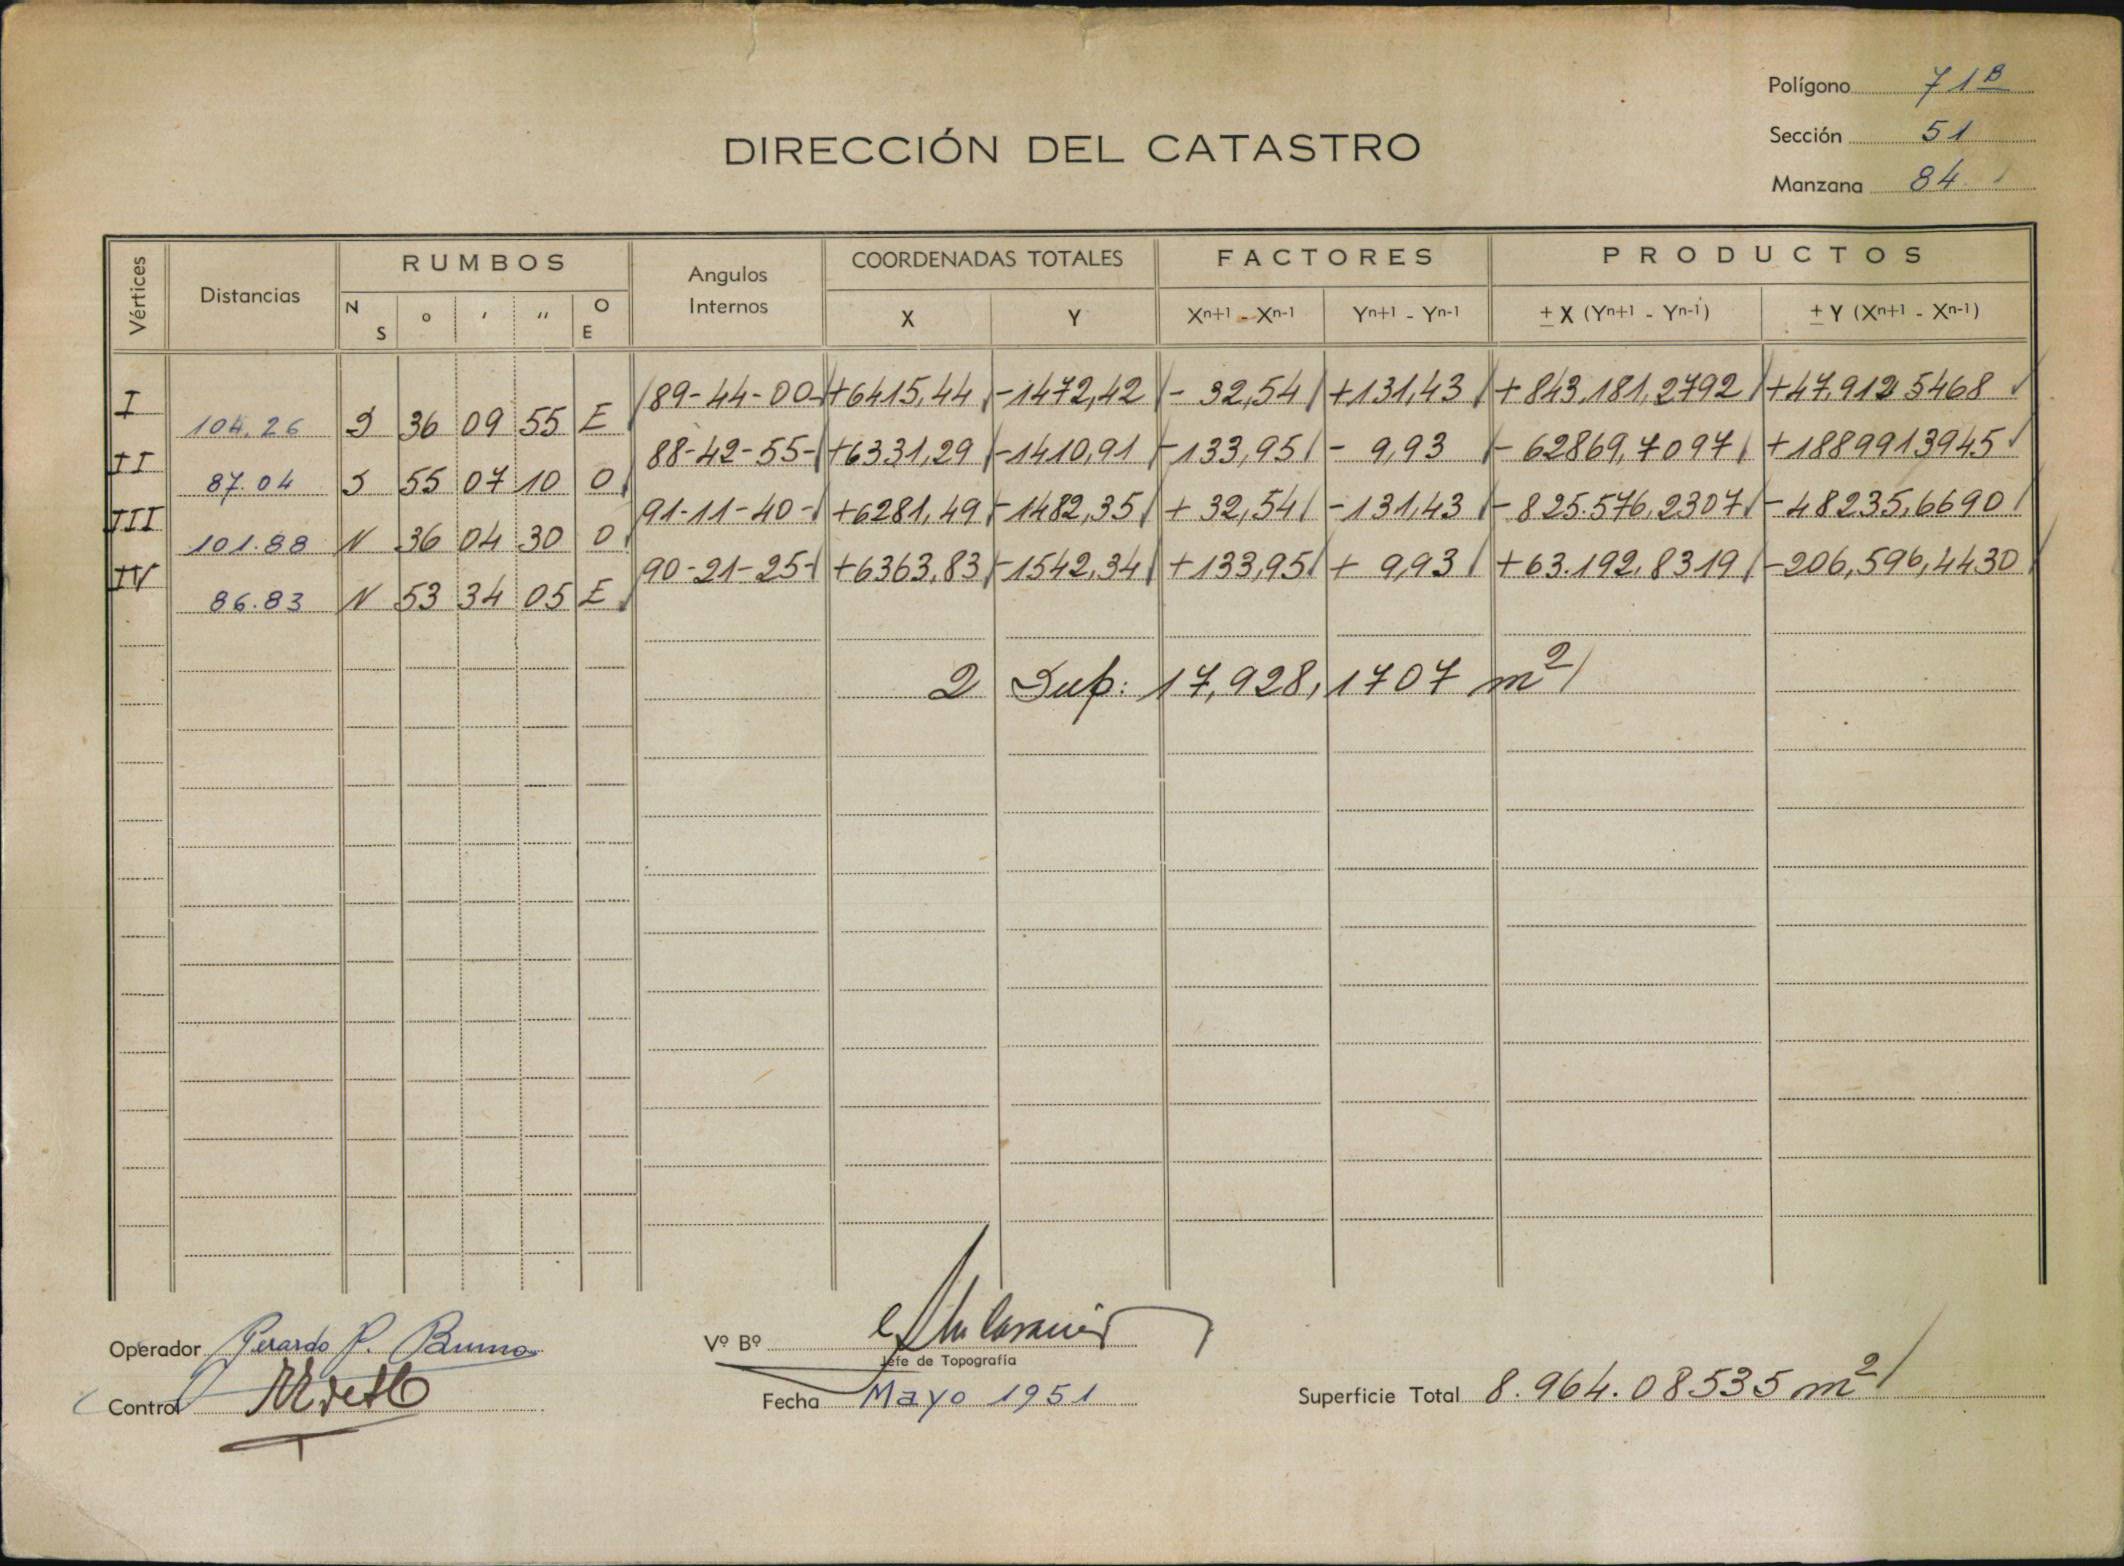 Polígono 71 B
Sección 51
Manzana 84
DIRECCIÓN DEL CATASTRO
Vértices Distancias RUMBOS Angulos Internos COORDENADAS TOTALES FACTORES PRODUCTOS
N S ° ' " O E X Y Xn+1 - Xn-1 Yn+1 - Yn-1 ± X (Yn+1 - Yn-1) ± Y (Xn+1 - Xn-1)
I 89-44-00 +6415,44 -1472,42 - 32,54 +131,43 +843.181,2792 +47.912 5468
104.26 S 36 09 55 E
II 88-42-55- +6331,29 -1410,91 -133,95 - 9,93 - 62869,7097 +1889913945
87.04 S 55 07 10 O
III 91-11-40- +6281,49 -1482,35 + 32,54 -131,43 - 825.576,2307 -48235,6690
101.88 N 36 04 30 O
IV 90-21-25- +6363,83 -1542,34 +133,95 + 9,93 +63.192.8319 -206,596,4430
86.83 N 53 34 05 E
2 Sup: 17,928,1707 m2
Operador Gerardo P. Bruno
Vº Bº
Jefe de Topografía
Control
Fecha Mayo 1951
Superficie Total 8.964.08535 m2